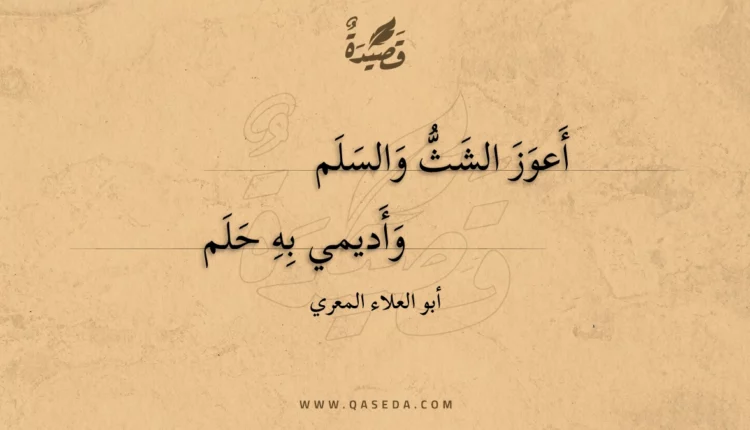 قَصِيدَةٌ
أَعوَزَ الشَثُّ وَالسَلَم
وَأَديمي بِهِ حَلَم
أبو العلاء المعري
WWW.QASEDA.COM